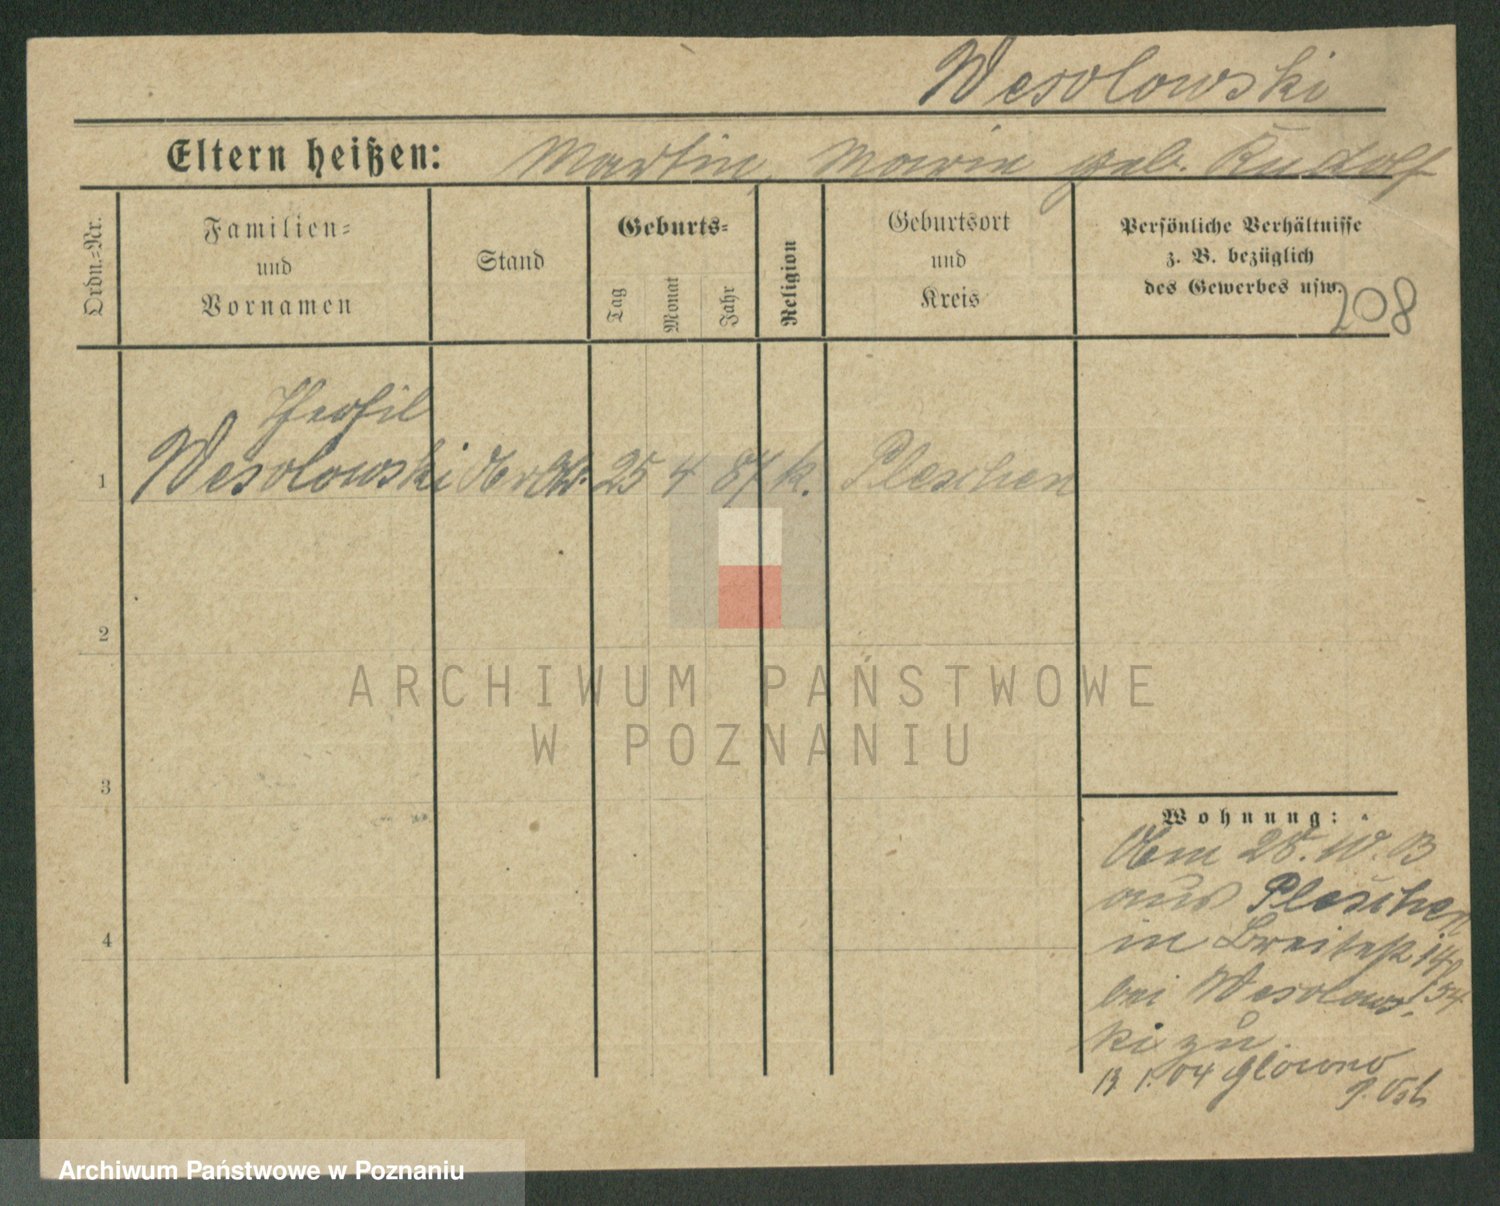 Wesolowski
Eltern heißen: Martin, Marie geb. Rudolf
Ordn.-Nr.
Familien- und Vornamen
Stand
Geburts-
Tag
Monat
Jahr
Religion
Geburtsort und Kreis
Persönliche Verhältnisse
z. B. bezüglich
des Gewerbes usw.
208
Theofil
1 Wesolowski 25 4 87 k. Pleschen
2
3
4
Wohnung:
aus Pleschen
in Breitestr 14
bei Wesolows-
ki zu
13 1. 04 Glowno
ARCHIWUM PAŃSTWOWE
W POZNANIU
Archiwum Państwowe w Poznaniu